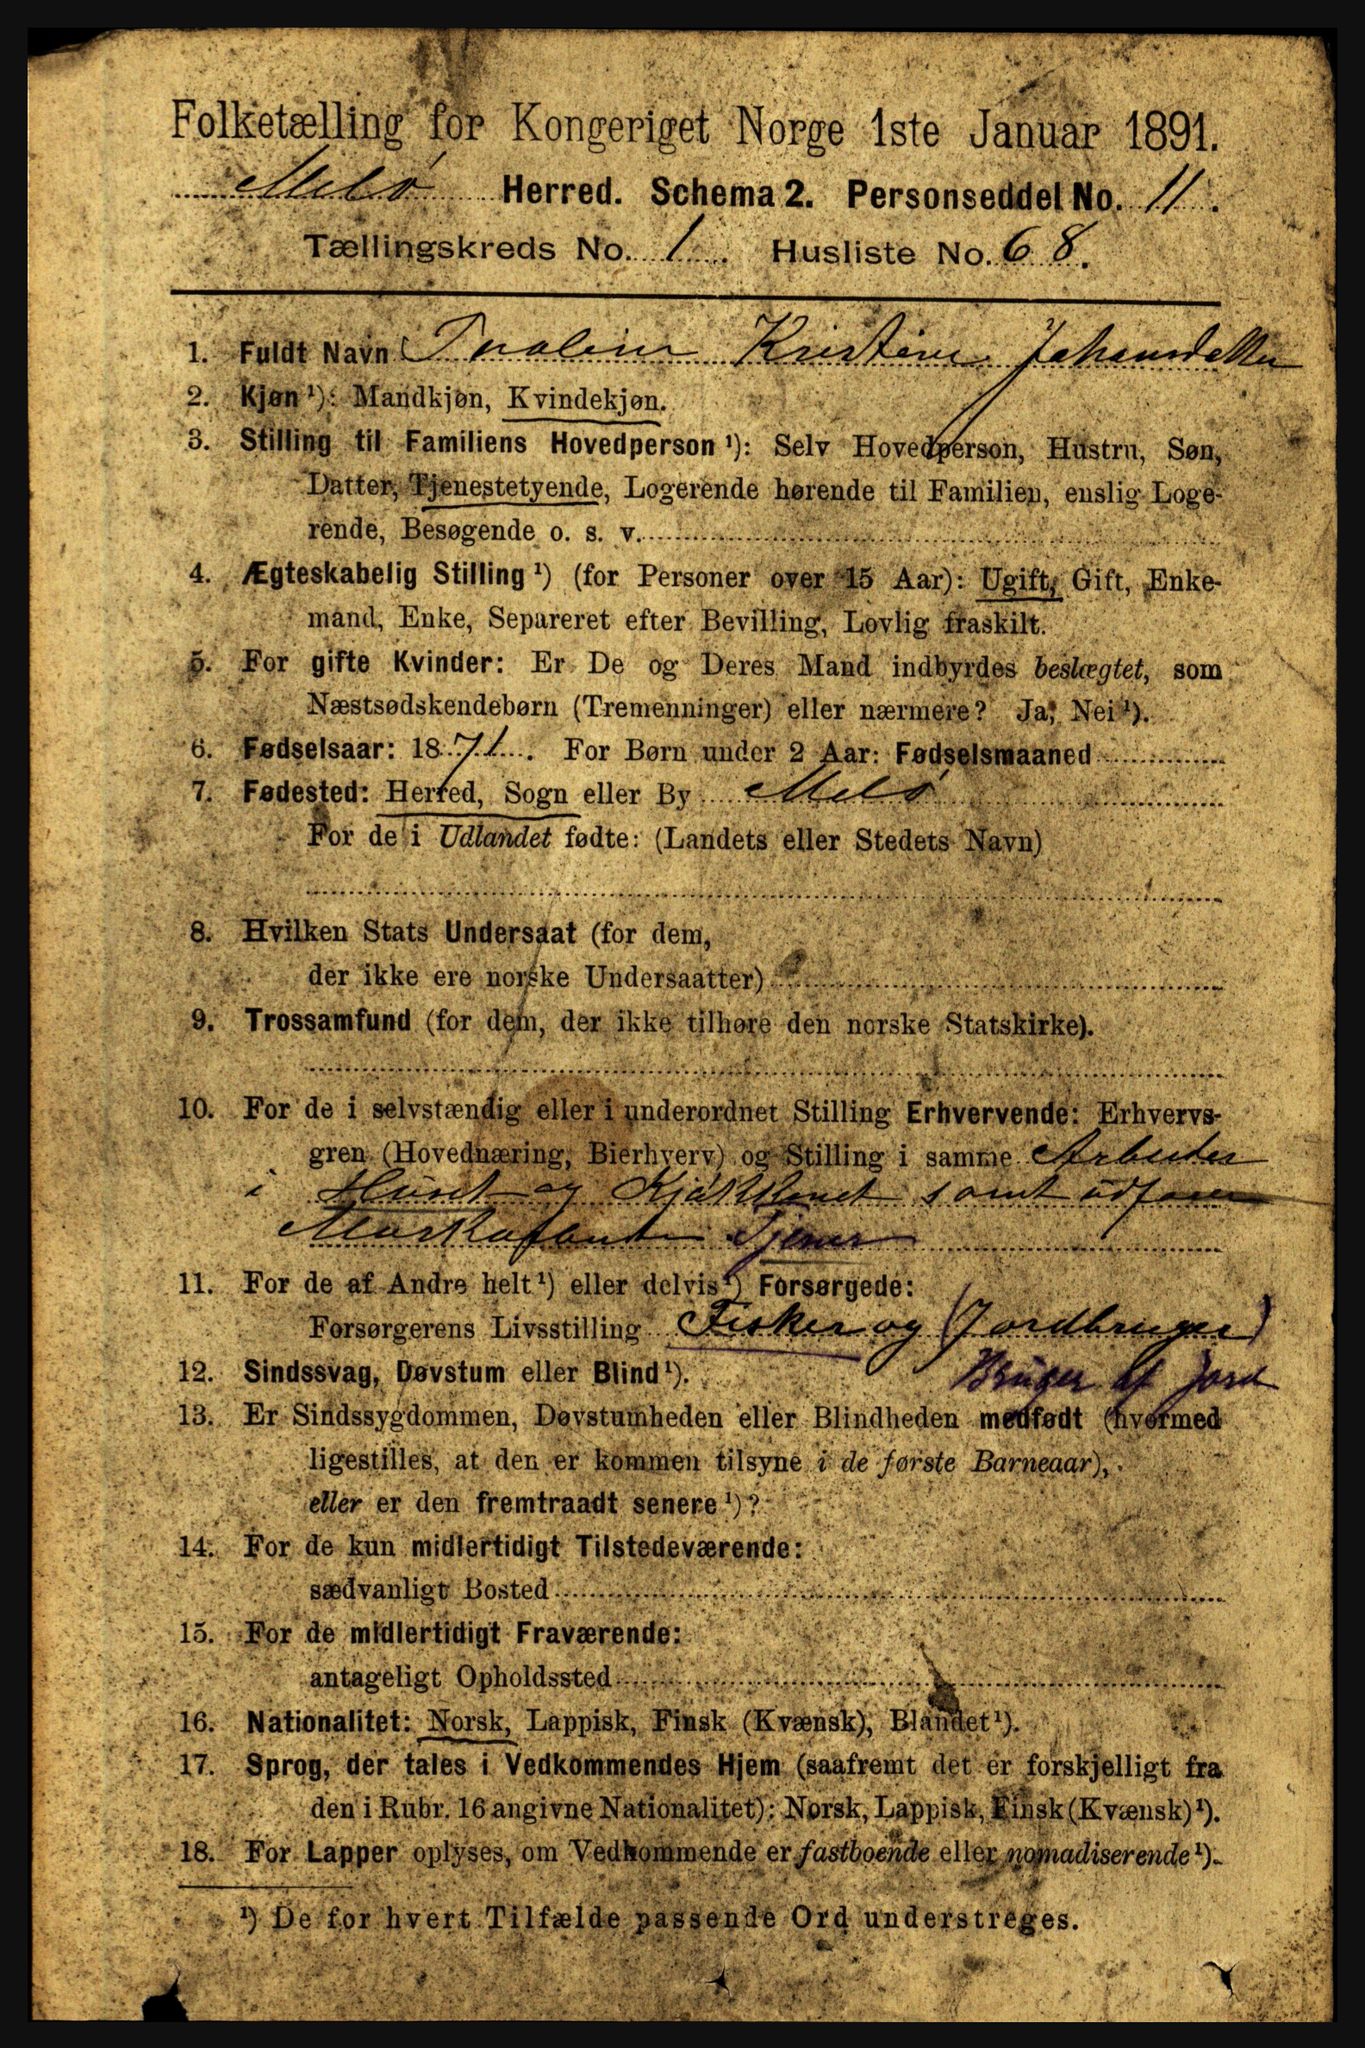 Folketælling for Kongeriget Norge 1ste Januar 1891.
Melø Herred. Schema 2. Personseddel No. 11.
Tællingskreds No. 1. Husliste No. 68.
1. Fuldt Navn Paaline Kristine Johansdatter
2. Kjøn ¹): Mandkjøn, Kvindekjøn.
3. Stilling til Familiens Hovedperson ¹): Selv Hovedperson, Hustru, Søn,
Datter, Tjenestetyende, Logerende hørende til Familien, enslig Loge-
rende, Besøgende o. s. v.
4. Ægteskabelig Stilling ¹) (for Personer over 15 Aar): Ugift, Gift, Enke-
mand, Enke, Separeret efter Bevilling, Lovlig fraskilt.
5. For gifte Kvinder: Er De og Deres Mand indbyrdes beslægtet, som
Næstsødskendebørn (Tremenninger) eller nærmere? Ja, Nei ¹).
6. Fødselsaar: 1871. For Børn under 2 Aar: Fødselsmaaned
7. Fødested: Herred, Sogn eller By Melø
For de i Udlandet fødte: (Landets eller Stedets Navn)
8. Hvilken Stats Undersaat (for dem,
der ikke ere norske Undersaatter)
9. Trossamfund (for dem, der ikke tilhøre den norske Statskirke).
10. For de i selvstændig eller i underordnet Stilling Erhvervende: Erhvervs-
gren (Hovednæring, Bierhverv) og Stilling i samme Arbeider
i Huset og samt udfører
Tjener
11. For de af Andre helt ¹) eller delvis ¹) Forsørgede:
Forsørgerens Livsstilling Fisker og (Jordbruger)
12. Sindssvag, Døvstum eller Blind ¹). Bruger af Jord
13. Er Sindssygdommen, Døvstumheden eller Blindheden medfødt (hvormed
ligestilles, at den er kommen tilsyne i de første Barneaar),
eller er den fremtraadt senere ¹)?
14. For de kun midlertidigt Tilstedeværende:
sædvanligt Bosted
15. For de midlertidigt Fraværende:
antageligt Opholdssted
16. Nationalitet: Norsk, Lappisk, Finsk (Kvænsk), Blandet ¹).
17. Sprog, der tales i Vedkommendes Hjem (saafremt det er forskjelligt fra
den i Rubr. 16 angivne Nationalitet): Norsk, Lappisk, Finsk (Kvænsk) ¹).
18. For Lapper oplyses, om Vedkommende er fastboende eller nomadiserende ¹).
¹) De for hvert Tilfælde passende Ord understreges.